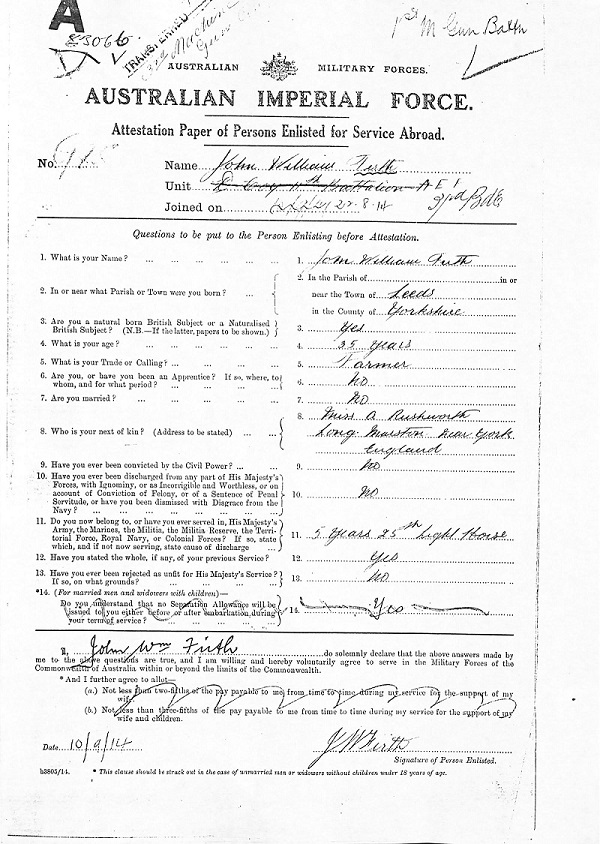 A
TRANSFERRED
Machine
1st M Gun Battn
AUSTRALIAN MILITARY FORCES.
AUSTRALIAN IMPERIAL FORCE.
Attestation Paper of Persons Enlisted for Service Abroad.
No.
Name John William Firth
Unit Coy 11th Battalion A E 1 3rd Bde
Joined on 22-8-14
Questions to be put to the Person Enlisting before Attestation.
1. What is your Name? ... 1. John William Firth
2. In or near what Parish or Town were you born? ... 2. In the Parish of in or
near the Town of Leeds
in the County of Yorkshire
3. Are you a natural born British Subject or a Naturalised
British Subject? (N.B.—If the latter, papers to be shown.) 3. Yes
4. What is your age? ... 4. 35 Years
5. What is your Trade or Calling? ... 5. Farmer
6. Are you, or have you been an Apprentice? If so, where, to
whom, and for what period? ... 6. No
7. Are you married? ... 7. No
8. Who is your next of kin? (Address to be stated) ... 8. Miss A Rushworth
Long Marston Near York
England
9. Have you ever been convicted by the Civil Power? ... 9. No
10. Have you ever been discharged from any part of His Majesty's
Forces, with Ignominy, or as Incorrigible and Worthless, or on
account of Conviction of Felony, or of a Sentence of Penal
Servitude, or have you been dismissed with Disgrace from the
Navy? ... 10. No
11. Do you now belong to, or have you ever served in, His Majesty's
Army, the Marines, the Militia, the Militia Reserve, the Terri-
torial Force, Royal Navy, or Colonial Forces? If so, state
which, and if not now serving, state cause of discharge ... 11. 5 Years 25th Light Horse
12. Have you stated the whole, if any, of your previous Service? 12. Yes
13. Have you ever been rejected as unfit for His Majesty's Service?
If so, on what grounds? ... 13. No
*14. (For married men and widowers with children)—
Do you understand that no Separation Allowance will be
issued to you either before or after embarkation during
your term of service? ... 14. Yes
I, John Wm Firth do solemnly declare that the above answers made by
me to the above questions are true, and I am willing and hereby voluntarily agree to serve in the Military Forces of the
Commonwealth of Australia within or beyond the limits of the Commonwealth.
* And I further agree to allot—
(a.) Not less than two-fifths of the pay payable to me from time to time during my service for the support of my
wife.
(b.) Not less than three-fifths of the pay payable to me from time to time during my service for the support of my
wife and children.
Date 10/9/14
J W Firth
Signature of Person Enlisted.
b3805/14. * This clause should be struck out in the case of unmarried men or widowers without children under 18 years of age.